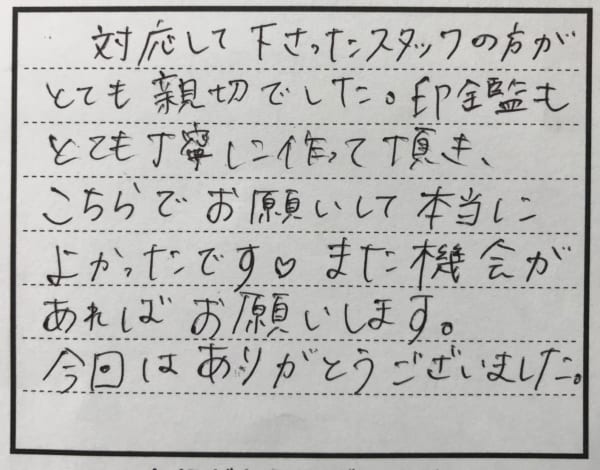 対応して下さったスタッフの方が
とても親切でした。印鑑も
とても丁寧に作って頂き、
こちらでお願いして本当に
よかったです♡また機会が
あればお願いします。
今回はありがとうございました。